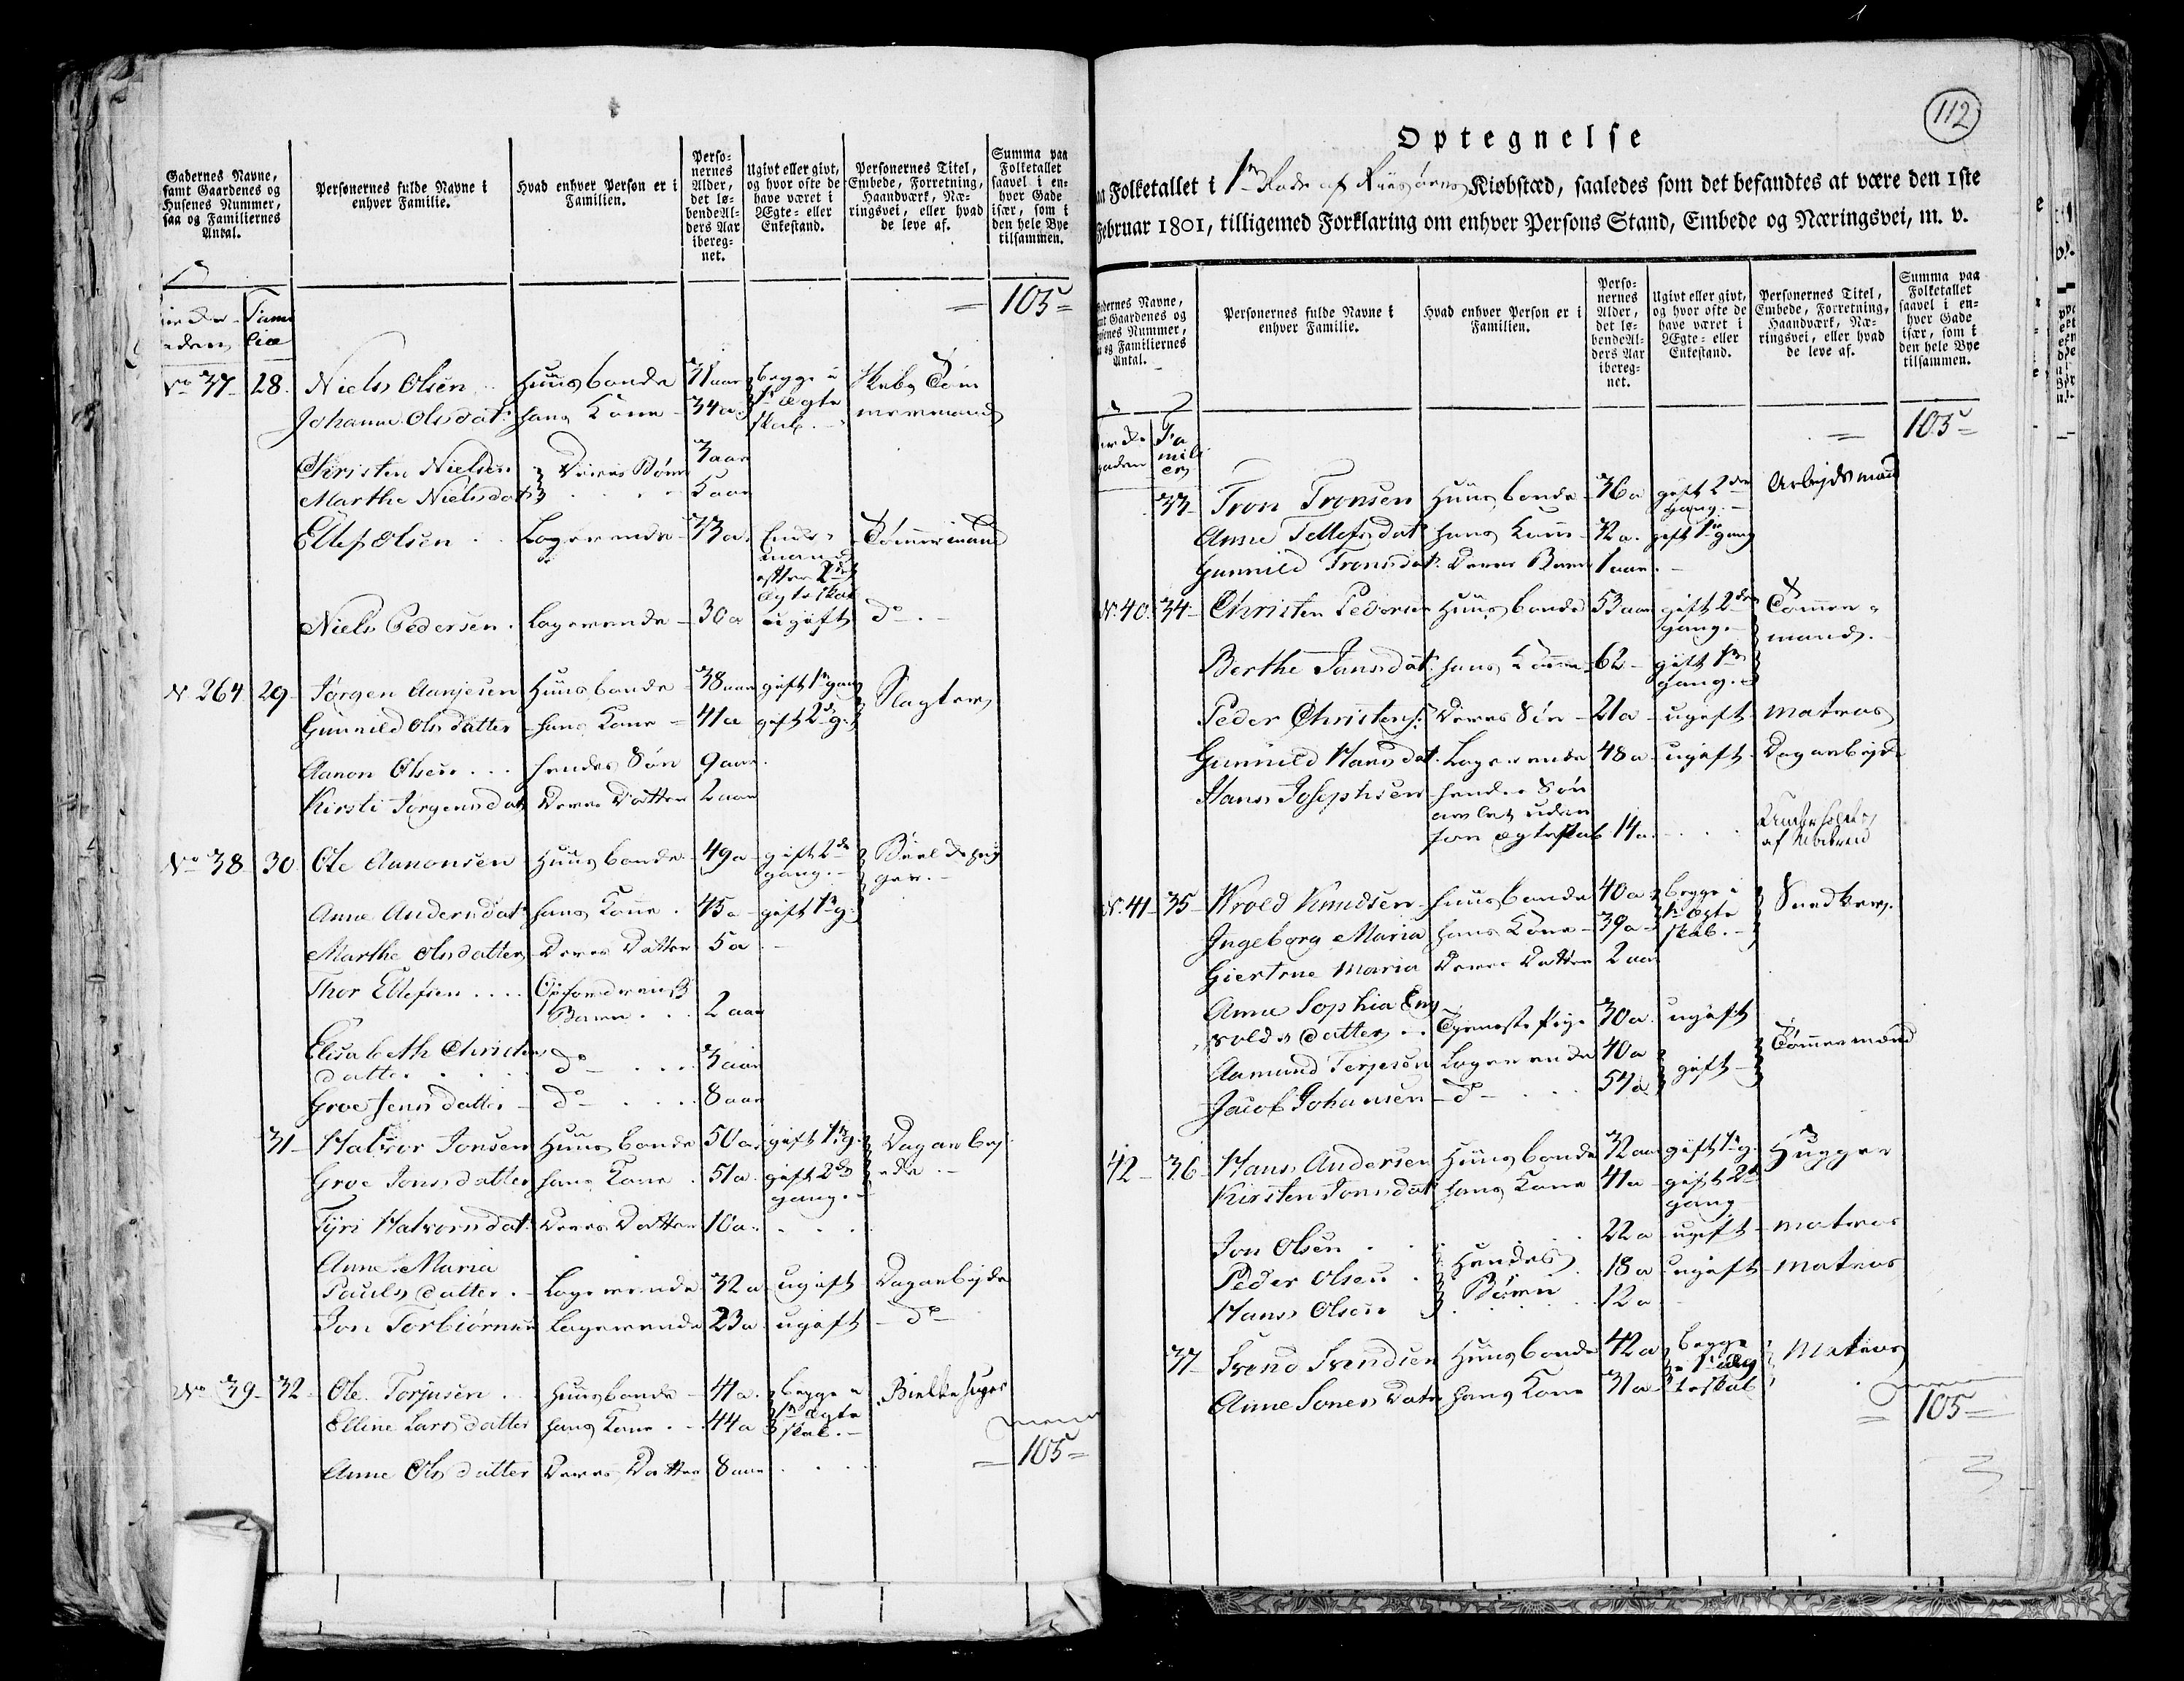 Gadernes Navne, samt Gaardenes og Husenes Nummer, saa og Familiernes Antal.
Personernes fulde Navne i enhver Familie.
Hvad enhver Person er i Familien.
Personernes Alder, det løbende Alders Aar iberegnet.
Ugivt eller givt, og hvor ofte de have været i Ægte- eller Enkestand.
Personernes Titel, Embede, Forretning, Haandværk, Næringsvei, eller hvad de leve af.
Summa paa Folketallet saavel i enhver Gade især, som i den hele Bye tilsammen.
105
No 37 28. Niels Olsen Huusbonde 31 aar begge i 1te ægteskab Skibs Tømmermand
Johanne Olsdatr hans Kone 34 a.
Christen Nielsen Deres Børn 3 aar
Marthe Nielsdatr 5 aar
Ellef Olsen Logerende 33 a. Enkemand efter 2det ægteskab Tømmermand
Niels Pedersen Logerende 30 a ugift do
N 264 29 Jørgen Aanjesen Huusbonde 38 aar gift 1te gang Slagter
Gunnild Olsdatter hans Kone 41 a gift 2d g.
Aanon Olsen hendes Søn 9 aar
Kirsti Jørgensdatr Deres Datter 2 aar
No 38 30 Ole Aanonsen Huusbonde 49 a gift 2de gang
Anne Andersdatr hans Kone 45 a gift 1te g.
Marthe Olsdatter Deres Datter 5 a
Thor Ellefsen Opfostrings Barn 2 aar
Elisabeth Christensdatter do 3 aar
Groe Jensdatter do 8 aar
31 Halvor Jonsen Huusbonde 50 a gift 1te g. Dagarbejde
Groe Jonsdatter hans Kone 51 a gift 2de gang
Tyri Halvorsdatr Deres Datter 10 a
Anne Maria
Paulsdatter Logerende 32 a ugift Dagarbejde
Jon Torbiørnsen Logerende 23 a ugift do
No 39 32 Ole Torjusen Huusbonde 41 a. begge i 1te ægteskab Bielkehuger
Elline Larsdatter hans Kone 44 a
Anne Olsdatter Deres Datter 8 aar
105
112
Optegnelse
Folketallet i 1te Rode af Riisøers Kiøbstæd, saaledes som det befandtes at være den 1ste
Februar 1801, tilligemed Forklaring om enhver Persons Stand, Embede og Næringsvei, m. v.
Personernes fulde Navne i enhver Familie.
Hvad enhver Person er i Familien.
Personernes Alder, det løbende Alders Aar iberegnet.
Ugivt eller givt, og hvor ofte de have været i Ægte- eller Enkestand.
Personernes Titel, Embede, Forretning, Haandværk, Næringsvei, eller hvad de leve af.
Summa paa Folketallet saavel i enhver Gade især, som i den hele Bye tilsammen.
105
33 Tron Tronsen Huusbonde 36 a gift 2den gang Arbejdsmand
Anne Tellefsdatr hans Kone 32 a. gift 1te gang
Gunnild Tronsdatr Deres Barn 1 aar
N. 40 34 Christen Pedersen Huusbonde 53 aar gift 2den gang Tømmermand
Berthe Jansdatr hans Kone 62 gift 1te gang
Peder Christens: Deres Søn 21 a ugift Matros
Gunnild Hansdatr Logerende 48 a ugift Dagarbejde
Hans Josephsen hendes Søn
avlet uden
for ægteskab 14 a. Underholdes af Moderen
N. 41 35 Wrold Knudsen Huusbonde 40 a begge i 1te ægteskab Snedker
Ingeborg Maria hans Kone 39 a
Giertrue Maria Deres Datter 2 aar
Anne Sophia Engvoldsdatter Tjenestepige 30 a ugift
Aamund Terjesen Logerende 40 a gift Tømmermænd
Jacob Johansen do 54 a
42 36 Hans Andersen Huusbonde 32 aar gift 1te g. Hugger
Kirsten Jonsdatr hans Kone 41 a gift 2de gang
Jon Olsen 22 a ugift Matros
Peder Olsen Hendes Børn 18 a ugift Matros
Hans Olsen 12 a
37 Svend Svendsen Huusbonde 42 a begge i 1te ægteskab Matros
Anne Sonesdatr hans Kone 31 a
105